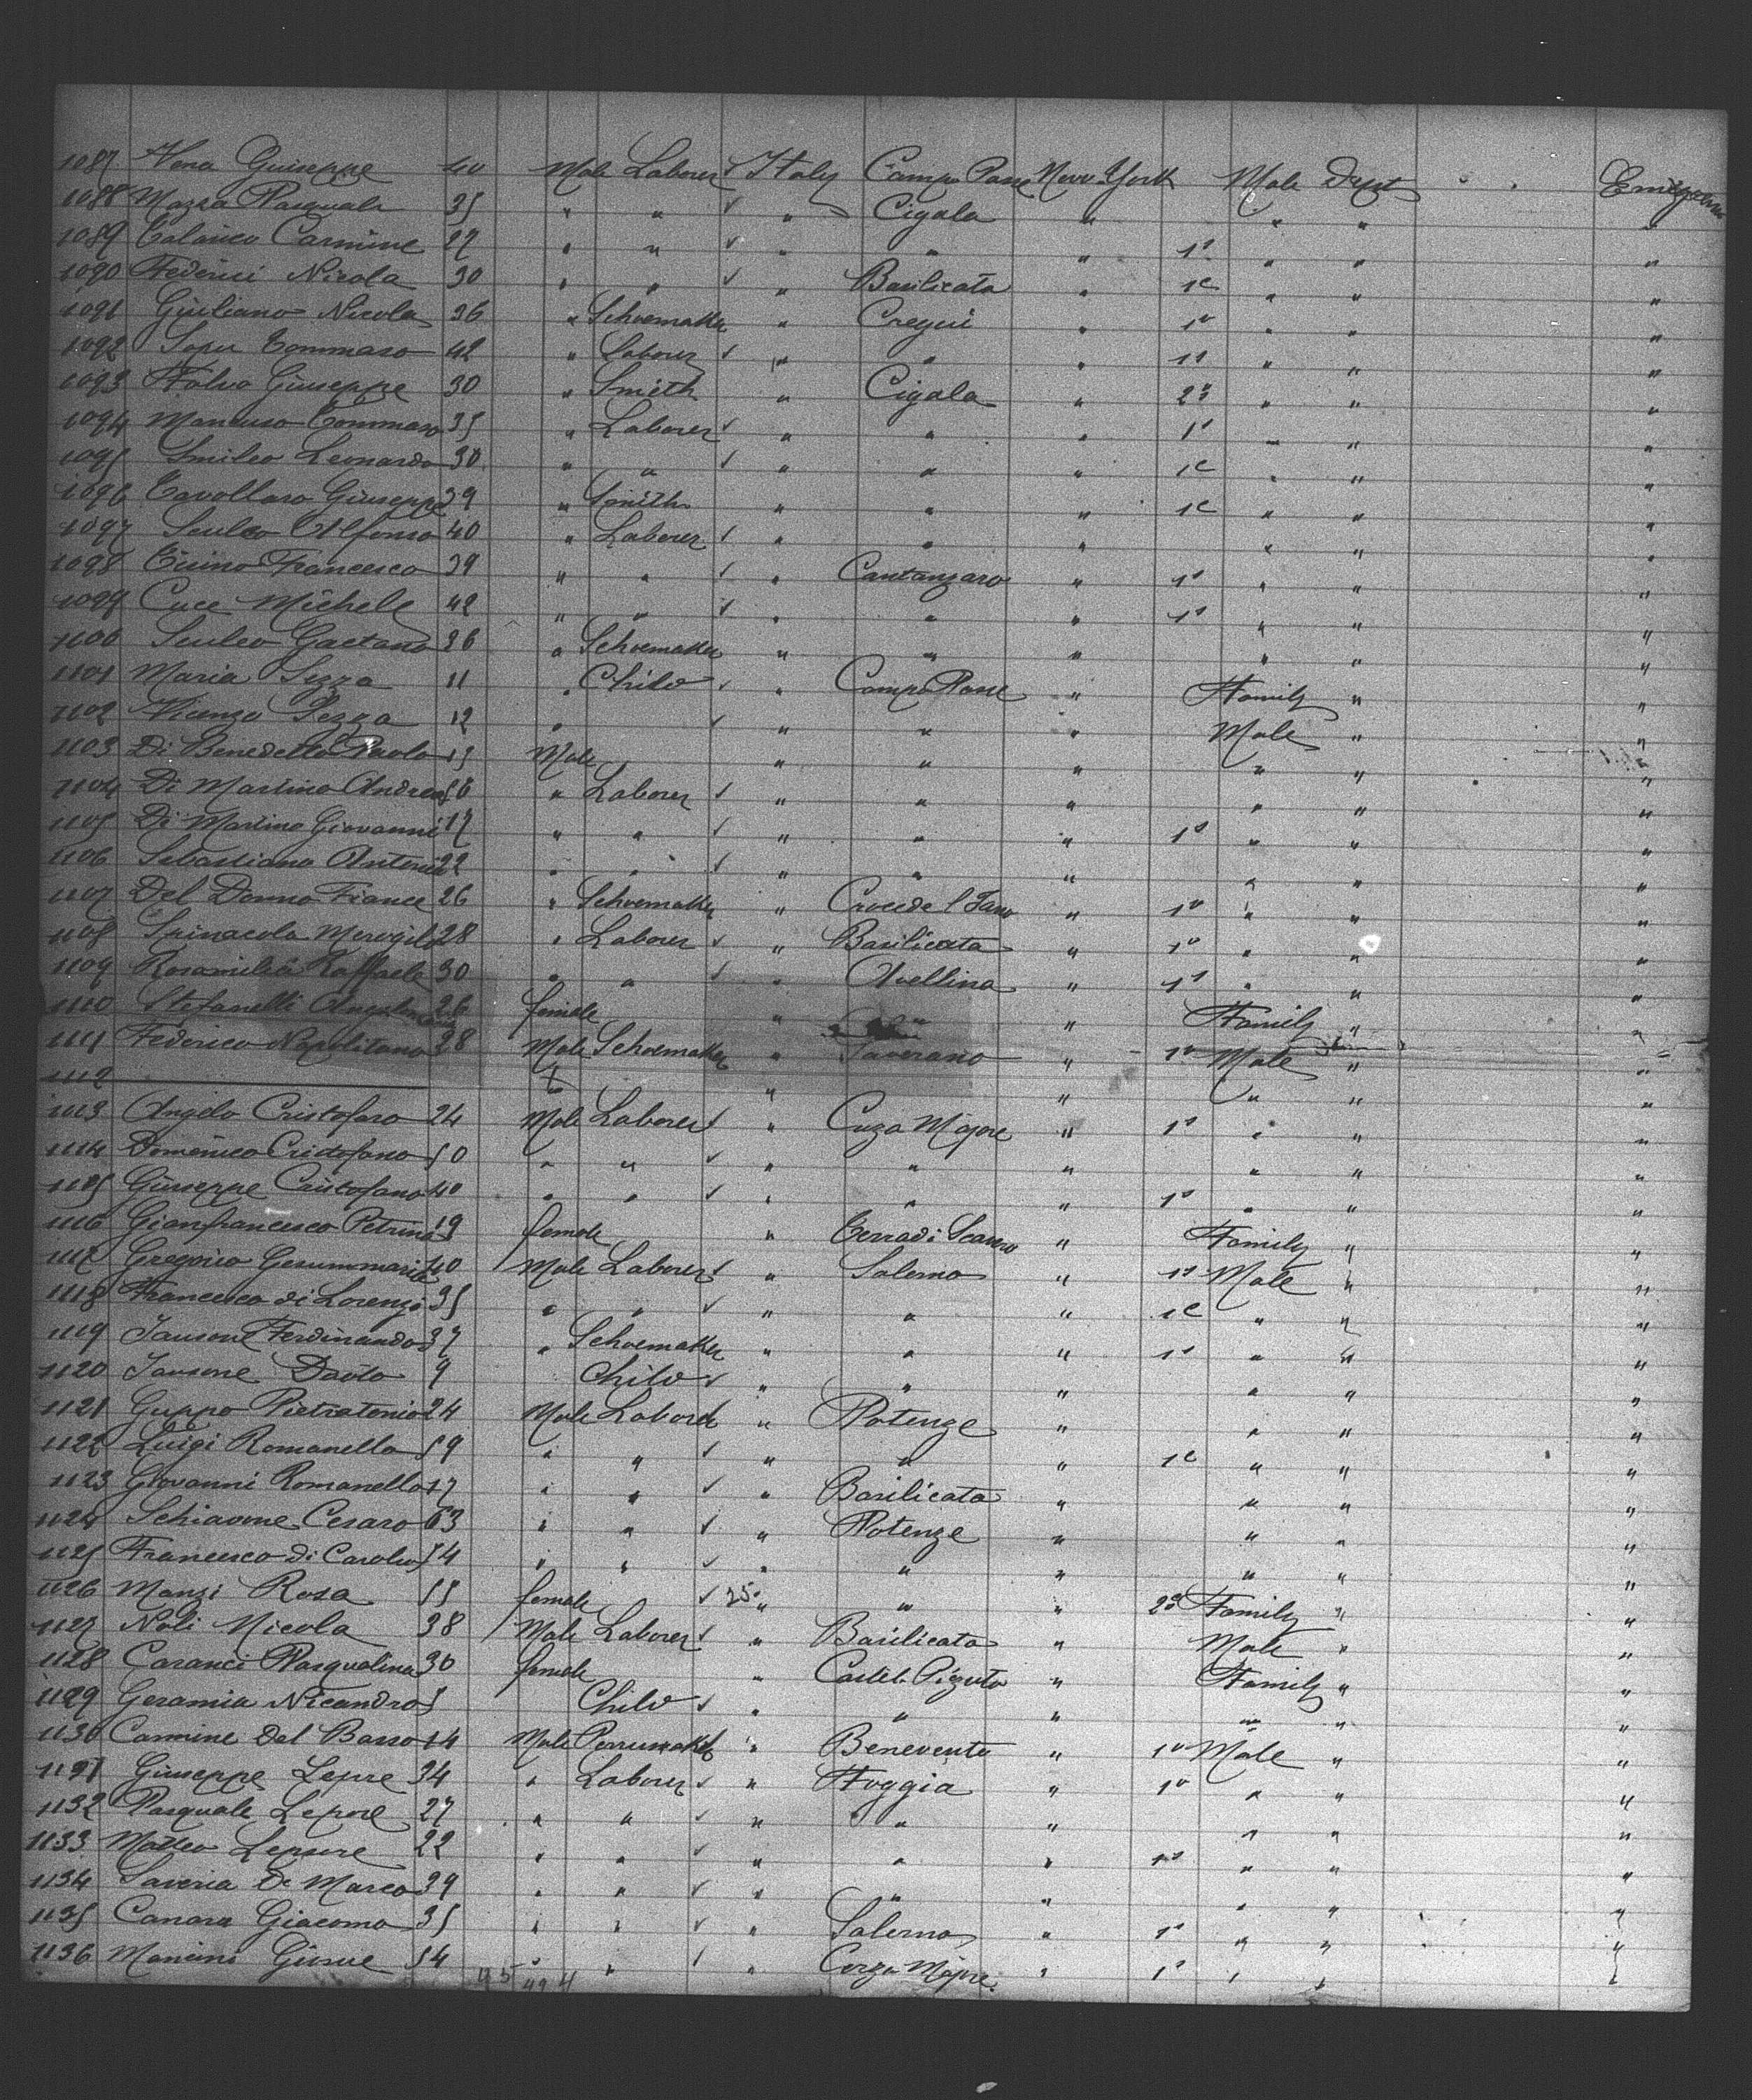 1087 Vena Guiseppe 40 Male Laborer Italy Campo Rane New York Male Dept Emigrant
1088 Mazza Pasquale 35 " " " Cigala " " " "
1089 Colaneo Carmine 27 " " " " " 1 " " "
1090 Federici Nicola 30 " " " Basilicata " 1c " " "
1091 Giuliano Nicola 36 " Schoemaker " " 1 " " "
1092 Tommaso 42 " Laborer " " " 1 " " "
1093 Falvo Giuseppe 30 " Smith " Cigala " 2 " " "
1094 Mancuso Tommaso 35 " Laborer " " " 1 " " "
1095 Smileo Leonardo 30 " " " " " 1c " " "
1096 Cavollaro Giuseppe 39 " Smith " " " 1c " " "
1097 Sculco Alfonso 40 " Laborer " " " " " "
1098 Cisino Francesco 39 " " " Cantanzaro " 1 " " "
1099 Cuce Michele 42 " " " " " 1 " " "
1100 Sculco Gaetano 26 " Schoemaker " " " " " "
1101 Maria Sezza 11 " Child " Campo Rane " Family " "
1102 Vicenzo Pezza 12 " " " " Male " "
1103 Di Benedetto Paolo 15 Male " " " " " "
1104 Di Martino Andrea 56 " Laborer " " " " " "
1105 Di Martino Giovanni 17 " " " " " 1 " " "
1106 Sebastiano Antonio 22 " " " " " " " "
1107 Del Donno France 26 " Schoemaker " " 1 " " "
1108 Spinacola 28 " Laborer " Basilicata " 1 " " "
1109 Rosamilia Raffaele 30 " " " Avellina " 1 " " "
1110 Stefanelli 26 female " " " Family " "
1111 Federico Napolitano 38 Male Schoemaker " Taverano " 1 Male " "
1112 " " " " "
1113 Angelo Cristofaro 24 Male Laborer " Cuza Majore " 1 " " "
1114 Domenico Cristofano 50 " " " " " " " "
1115 Giuseppe Cristofano 40 " " " " " 1 " " "
1116 Gianfrancesco Petrina 19 female " " Family " "
1117 Gregorio 40 Male Laborer " Salerno " 1 Male " "
1118 Francesco di Lorenzo 35 " " " " " 1c " " "
1119 Jansone Ferdinando 37 " Schoemaker " " " 1 " " "
1120 Jansone Daoto 9 Child " " " " " "
1121 Guppo Pietratonio 24 Male Laborer " Potenze " " " "
1122 Luigi Romanello 59 " " " " " 1c " " "
1123 Giovanni Romanello 17 " " " Basilicata " " " "
1124 Schiavone Cesaro 63 " " " Potenze " " " "
1125 Francesco di Carolus 54 " " " " " " " "
1126 Manzi Rosa 55 female 25 " " " 2 Family " "
1127 Noli Nicola 38 Male Laborer " Basilicata " Male " "
1128 Caranci Pasqualina 30 female " Castel. Pizzuto " Family " "
1129 Geramia Nicandro 5 Child " " " " " "
1130 Carmine Del Basso 14 Male " Benevento " 1 Male " "
1131 Giuseppe Lepre 34 " Laborer " Foggia " 1 " " "
1132 Pasquale Lepore 27 " " " " " " " "
1133 Matteo Lepore 22 " " " " " 1 " " "
1134 Saveria De Marco 39 " " " " " " " "
1135 Canara Giacomo 35 " " " Salerno " 1 " " "
1136 Mancini Giosue 54 " " " Corza Majore " 1 " " "
45 49 4